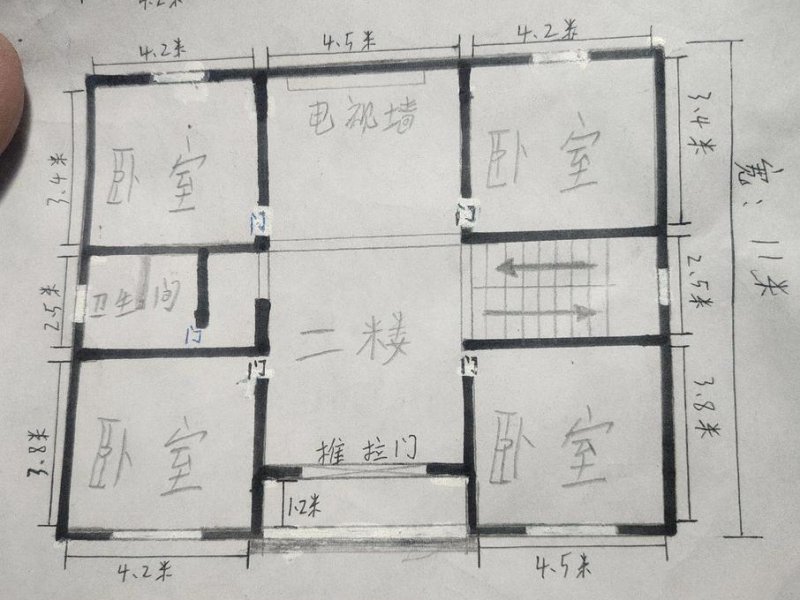 4.2米
4.2米 4.5米 4.2米
电视墙
卧室
卧室
3.4米
3.4米
门
门
宽：11米
卫生间
2.5米
2.5米
门
二楼
门
门
卧室
卧室
3.8米
3.8米
推拉门
1.2米
4.2米
4.5米